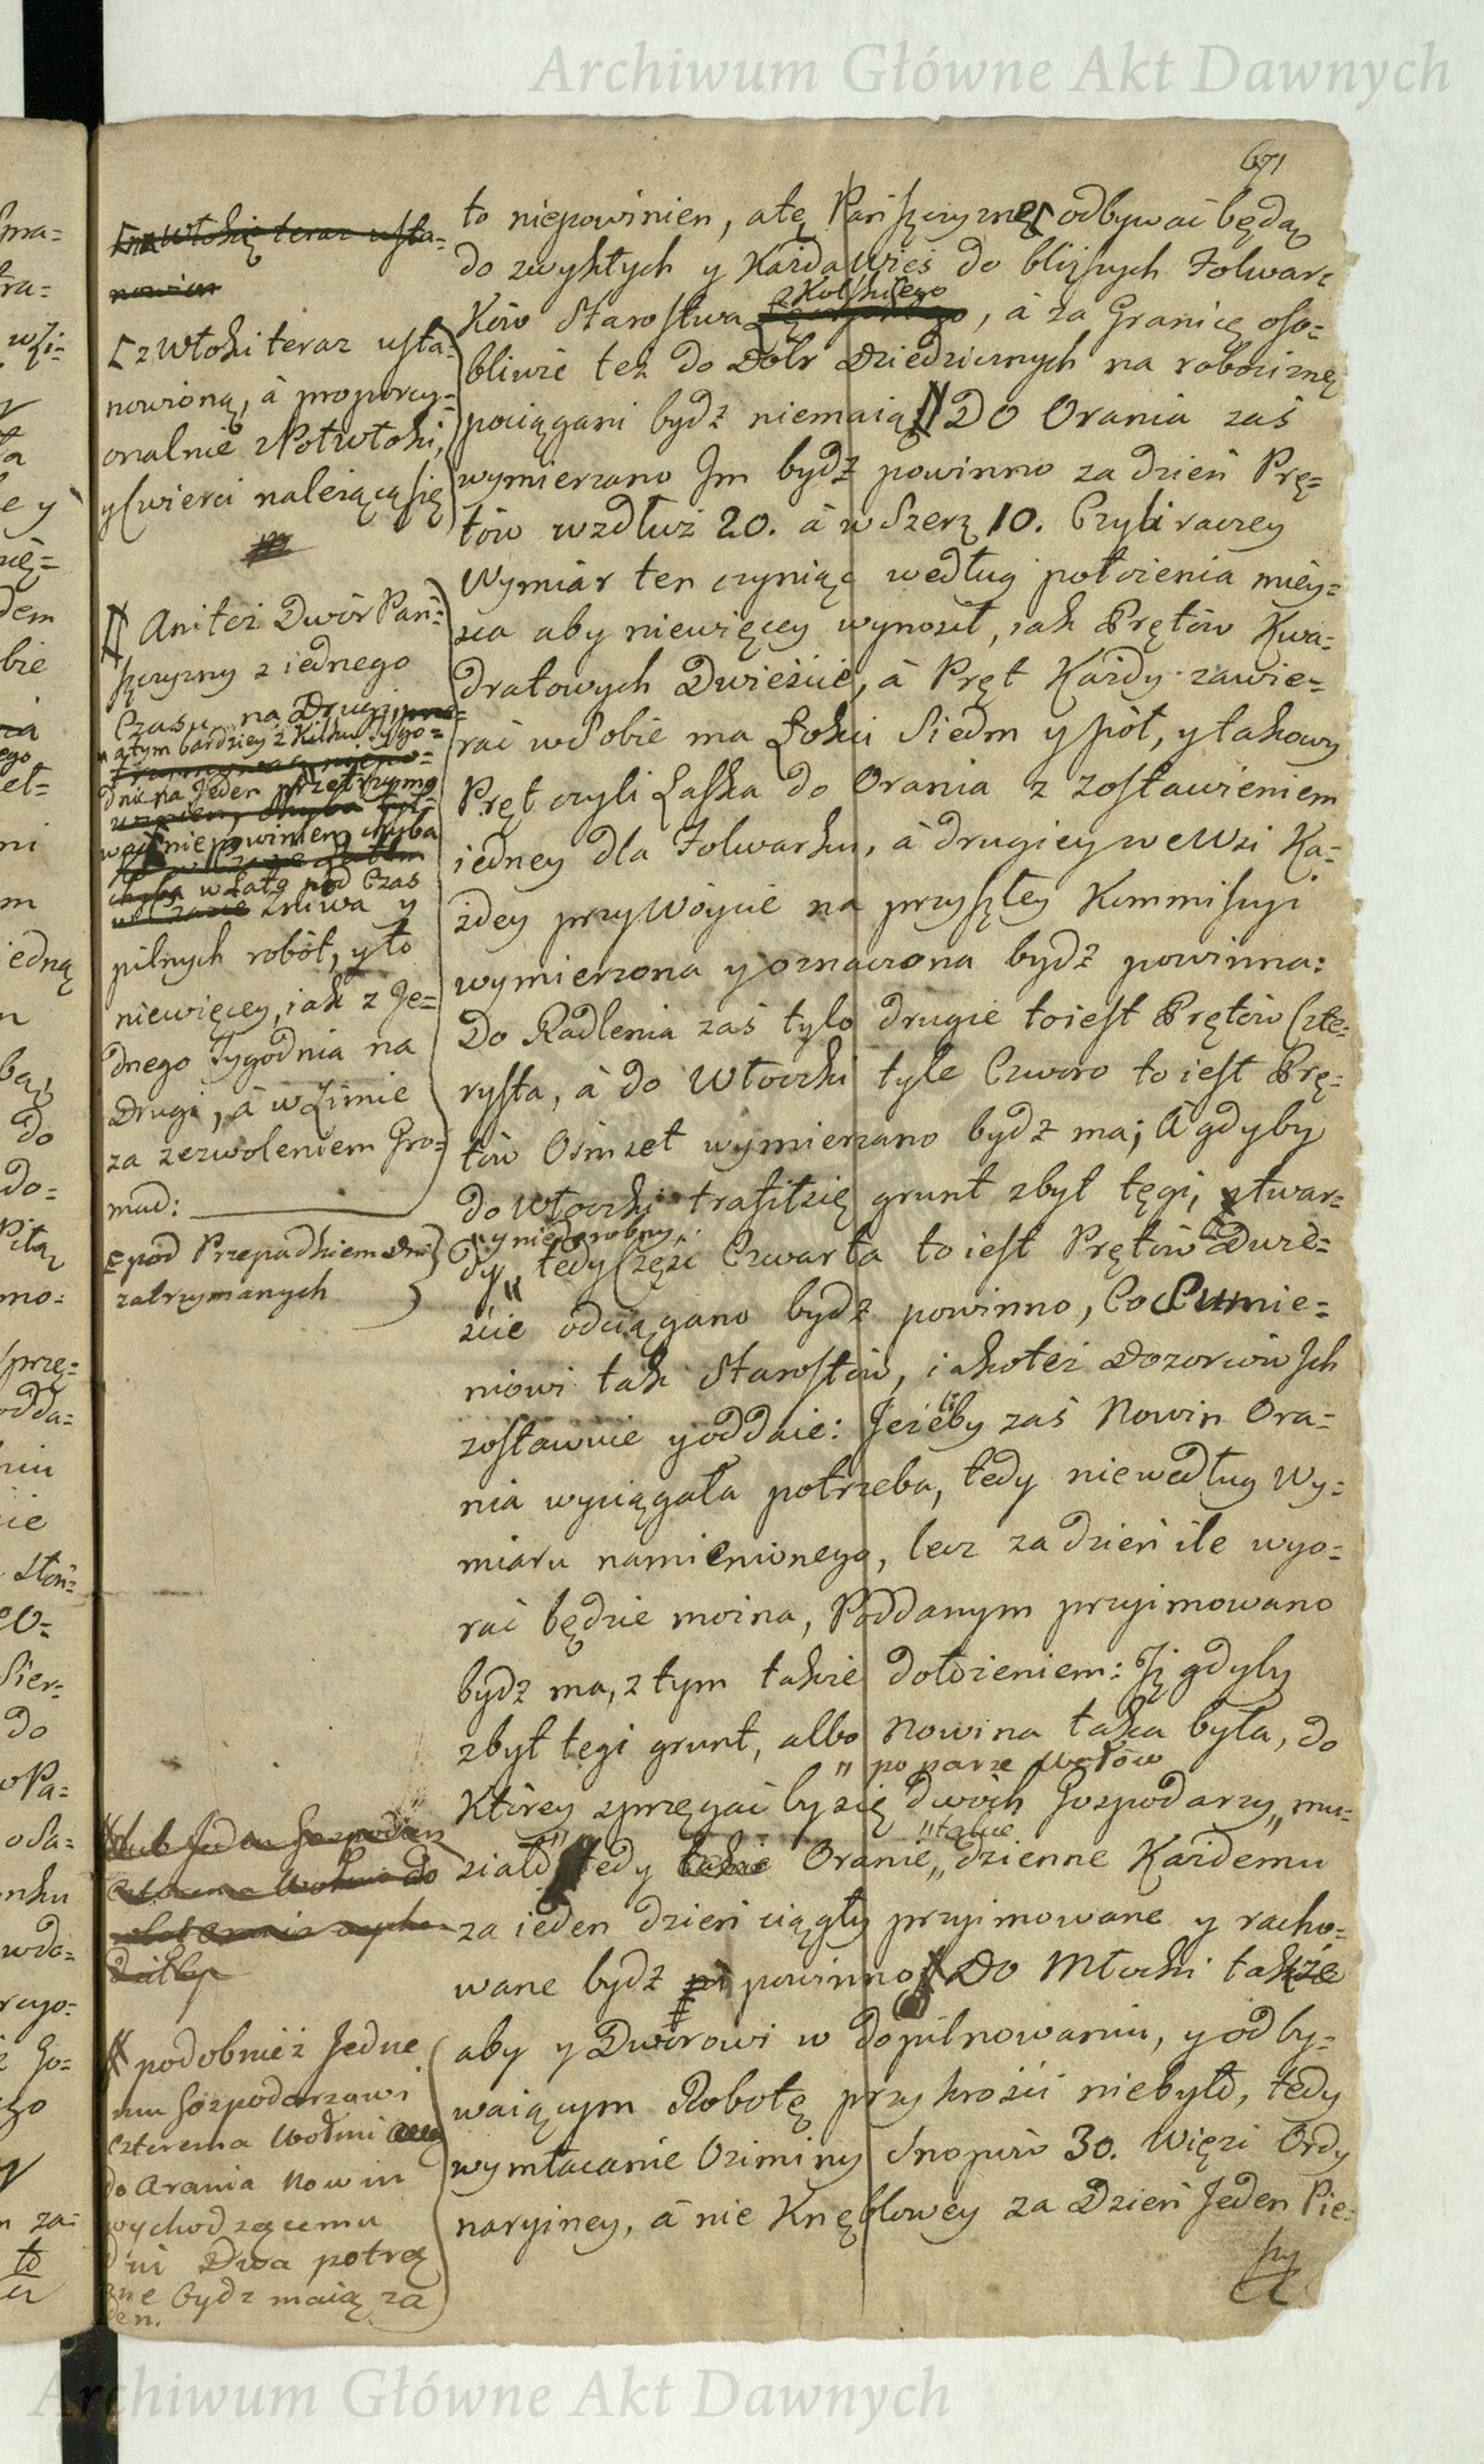 Archiwum Główne Akt Dawnych
671
to niepowinien, a tę Pańszczyznę odbywać będą
do zwykłych y Kazda Wieś do bliższych Folwar=
Ków Starostwa z Kolskiego, à za Granicę oso=
bliwie też do Dobr Dziedzicznych na robociznę
pociągani bydź niemaią // Do Orania zaś
wymierzano Jm bydź powinno za dzień Prę=
tów wzdłuż 20. à w Szerz 10. Czyli raczey
Wymiar ten czyniąc według położenia miey=
sca aby niewięcey wynosił, iak Prętów Kwa=
dratowych Dwieście, à Pręt Każdy zawie=
rać w Sobie ma Łokci Siedm y pół, y takowy
Pręt czyli Laska do Orania z zostawieniem
iedney dla Folwarku, à drugiey we Wsi Ka=
żdey przy Wóycie na przyszłey Kommissyi
wymierzona y oznaczona bydź powinna:
Do Radlenia zaś tylo drugie to iest Prętów Czte=
rysta, à do Włoczki tyle Czworo to iest Prę=
tów Ośmset wymierzano bydź ma; A gdyby
do Włoczki trafił się grunt zbyt tęgi, y twar=
" y niedorobny
dy " tedy Część Czwarta to iest Prętów Dwie=
ście odciągano bydź powinno, Co Sumie=
niowi tak Starostów, iako też Dozorców Jch
zostawuie y oddaie: Jeżeliby zaś Nowin Ora=
nia wyciągała potrzeba, tedy nie według Wy=
miaru namienionego, lecz za dzień ile wyo=
rać będzie można, Poddanym przyimowano
bydź ma, z tym także dołożeniem: Jż gdyby
zbyt tęgi grunt, albo Nowina taka była, do
" po parze wołów
Którey sprzęgać by się dwóch Gospodarzy " mu=
" takie
siało tedy Oranie " dzienne Każdemu
za ieden dzień ciągły przyimowane y racho=
wane bydź powinno // Do Młocki także
aby y Dworowi w dopilnowaniu, y odby=
waiącym Robotę przykrości niebyło, tedy
wymłacanie Oziminy Snopów 30. Więzi Ordy
naryiney, à nie Knęblowey za Dzień Jeden Pie=
szy
[na Włokię teraz usta=
nowion
[z Włoki teraz usta=
nowioną, à proporcy=
onalnie z Półwłoki,
y ćwierci należącą się
// Ani też Dwór Pań=
szczyzny z iednego
Czasu na Drugi
a tym bardziey z Kilku Tygo=
dni na Jeden przetrzymo
wać niepowinien chyba
w Lato pod Czas
żniwa y
pilnych robót, y to
niewięcey, iak z Je=
dnego Tygodnia na
Drugi, à w Zimie
za zezwoleniem Gro=
mad:
pod Przepadkiem dni
zatrzymanych
lub Jeden Gospodarz
czterema Wołmi do
// podobnież Jedne
mu Gospodarzowi
czterema Wołmi
do Orania Nowin
wychodzącemu
dni Dwa potrą
zne bydz maią za
den.
Archiwum Główne Akt Dawnych